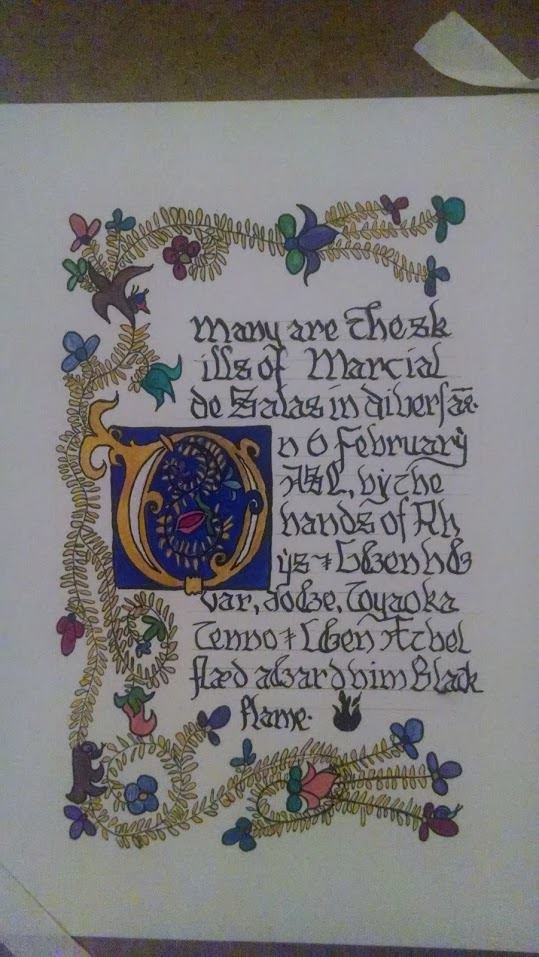 Many are the sk
ills of Marcial
de Salas in divers
On 6 February
ASL, by the
hands of Rh
ys ⁊ Cwen hw
var, Toyaoka
Tenno ⁊ Cwen Æthel
flæd award him Black
flame.